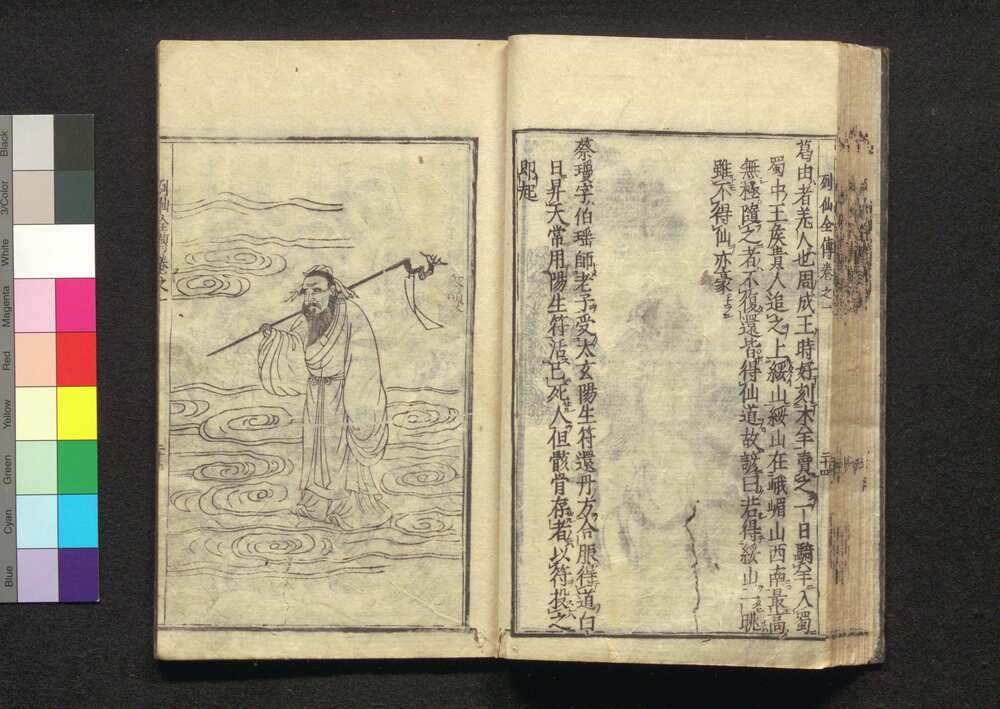 列仙全傳卷之一
二十四
葛由者羌人也周成王時好刻木羊賣之一日騎羊入蜀
蜀中王侯貴人追之上綏山綏山在峨嵋山西南最高
無極隨之者不復還皆得仙道故諺曰若得綏山一桃
雖不得仙亦豪
蔡瓊字伯瑶師老子受太玄陽生符還丹方合服得道白
日昇天常用陽生符活已死人但骸骨存者以符投之
即起
列仙全傳卷之一
Black
3/Color
White
Magenta
Red
Yellow
Green
Cyan
Blue